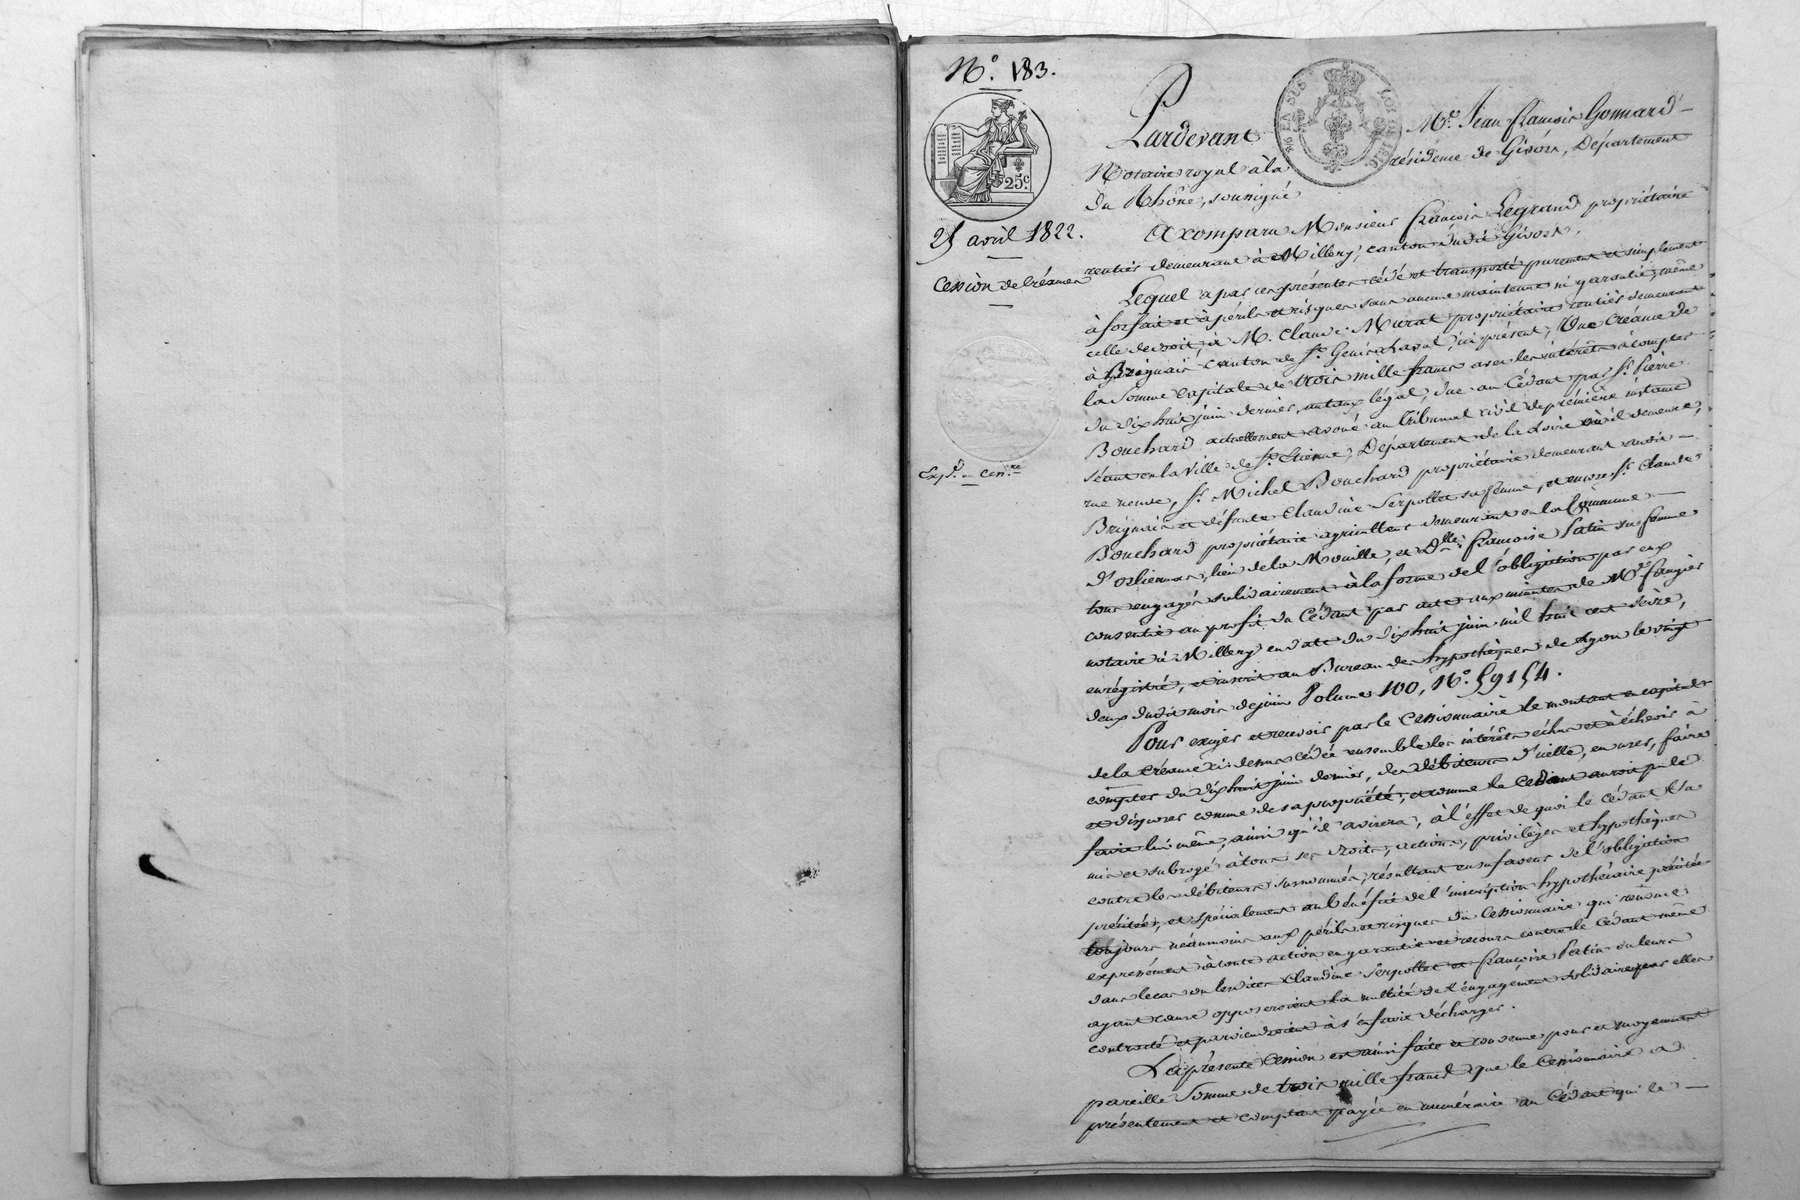 N.° 183.
25.c
25 avril 1822.
Cession de Créances
Exp.é au cess.re
Pardevant M.e Jean françois Gonnard
Notaire royal à la résidence de Givors, Département
du Rhône, soussigné
A comparu Monsieur françois Legrand propriétaire
rentier demeurant à Millery, canton dudit Givors.
Lequel a par ces présentes cédé et transporté purement et simplement
à forfait et à périls et risques sans aucune maintenue ni garantie, même
celle de droit, à M. Claude Murat propriétaire rentier demeurant
à Brignais canton de S.t Genis-Laval, ici présent, Une Créance de
la Somme Capitale de trois mille francs avec les intérêts à compter
du dix huit juin dernier, au taux légal, due au Cédant par S.r Pierre
Bouchard actuellement avoué au tribunal civil de première instance
séant en la Ville de S.t Etienne, Département de la Loire où il demeure,
rue neuve, S.r Michel Bouchard propriétaire demeurant audit
Brignais et défunte Claudine Serpollet sa femme, et encore S.r Claude
Bouchard propriétaire agriculteur demeurant en la Commune
d'orliennas, lieu de la Mouille, et D.lle françoise Patin sa femme
tous engagés solidairement à la forme de l'obligation par eux
consentie au profit du Cédant par acte aux minutes de M.e faugier
notaire à Millery en date du dix huit juin mil huit cent seize,
enrégistré, et inscrit au Bureau des hypothèques de Lyon le vingt
deux dudit mois de juin Volume 100, N.° 59154.
Pour exiger et recevoir par le Cessionnaire le montant en capital
de la Créance ci-dessus cédée ensemble les intérêts échus et à échoir à
compter du dix huit juin dernier, des débiteurs d'icelle, en user, faire
et disposer comme de sa propriété, et comme le Cédant auroit pu le
faire lui même, ainsi qu'il avisera, à l'effet de quoi le cédant l'a
mis et subrogé à tous ses droits, actions, privilèges et hypothèques
contre les débiteurs susnommés, résultant en sa faveur de l'obligation
précitée, et spécialement au bénéfice de l'inscription hypothécaire précitée
toujours néanmoins aux périls et risques du Cessionnaire qui renonce
expressément à toute action en garantie et recours contre le Cédant même
dans le cas où lesdites Claudine Serpollet et françoise Patin ou leurs
ayant cause opposeroient la nullité de l'engagement solidaire par elles
contracté et parviendroient à s'en faire décharger.
La présente Cession est ainsi faite et convenue pour et moyennant
pareille Somme de trois mille francs que le Cessionnaire a
présentement et comptant payée en numéraire au Cédant qui le